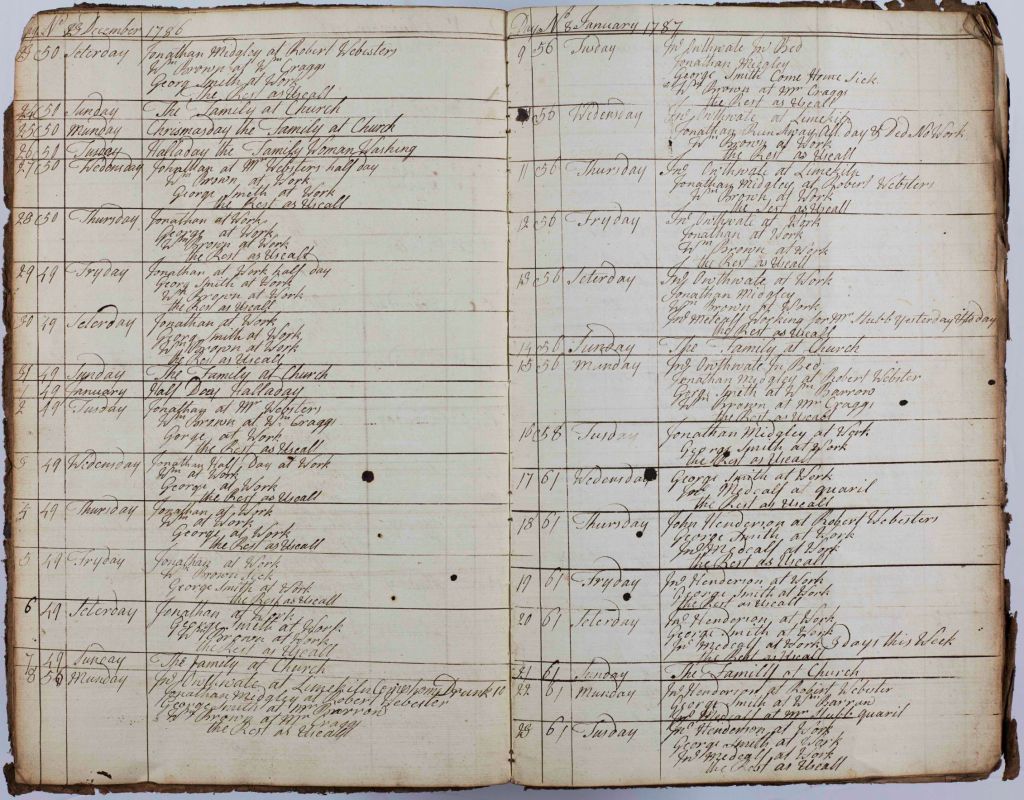 Day No 23 December 1786
23 50 Seterday Jonathan Midgley at Robert Websters
Wm Brown at Wm Craggs
Georg Smith at Work
the Rest as Useall
24 50 Sunday The Family at Church
25 50 Munday Chrismasday the Family at Church
26 50 Tusday Halladay the Family Woman Washing
27 50 Wedensday Jonathan at Mr Websters half day
Wm Brown at Work
George Smith at Work
the Rest as Useall
28 50 Thursday Jonathan at Work
George at Work
Wm Brown at Work
the Rest as Useall
29 49 Fryday Jonathan at Work half day
Georg Smith at Work
Wm Brown at Work
the Rest as Useall
30 49 Seterday Jonathan at Work
Georg Smith at Work
Wm Brown at Work
the Rest as Useall
31 49 Sunday The Family at Church
1 49 January Half Day Halladay
2 49 Tusday Jonathan at Mr Websters
Wm Brown at Wm Craggs
Gorge at Work
the Rest as Useall
3 49 Wedensday Jonathan Half Day at Work
Wm at Work
George at Work
the Rest as Useall
4 49 Thursday Jonathan at Work
Wm at Work
George at Work
the Rest as Useall
5 49 Fryday Jonathan at Work
Wm Brown Sick
George Smith at Work
the Rest as Useall
6 49 Seterday Jonathan at Work
George Smith at Work
Wm Brown at Work
the Rest as Useall
7 49 Sunday The Family at Church
8 56 Munday Jno Onthwate at Drunk
Jonathan Midgley at Robert Webester
George Smith at Mr Barrow
Wm Brown at Mr Craggs
the Rest as Useall
Day No 8 January 1787
9 56 Tusday Jno Onthwate In Bed
Jonathan Midgley
George Smith Come Home Sick
Wm Brown at Mr Craggs
the Rest as Useall
56 Wedensday Jno Onthwate at Limekiln
Jonathan Run Away All day & Ded No Work
Wm Brown at Work
the Rest as Useall
11 56 Thursday Jno Onthwate at Limekiln
Jonathan Midgley at Robert Websters
Wm Brown at Work
the Rest as Useall
12 56 Fryday Jno Onthwate at Work
Jonathan at Work
Wm Brown at Work
the Rest as Useall
13 56 Seterday Jno Onthwate at Work
Jonathan Midgley
Wm Brown at Work
Jno Metcalf Looking for Mr Hubb Yesterday & this day
the Rest as Useall
14 56 Sunday The Family at Church
15 56 Munday Jno Onthwate In Bed
Jonathan Midgley at Robert Webster
George Smith at Wm Barrow
Wm Brown at Mr Craggs
the Rest as Useall
16 58 Tusday Jonathan Midgley at Work
George Smith at Work
the Rest as Useall
17 61 Wedensday George Smith at Work
Jno Medcalf at quaril
the Rest as Useall
18 61 Thursday John Henderson at Robert Websters
George Smith at Work
Jno Medcalf at Work
the Rest as Useall
19 61 Fryday Jno Henderson at Work
George Smith at Work
the Rest as Useall
20 61 Seterday Jno Henderson at Work
George Smith at Work
Jno Medcalf at Work 3 days this Week
the Rest as Useall
21 61 Sunday The Family at Church
22 61 Munday Jno Henderson at Robert Webster
George Smith at Wm Barrow
Jno Medcalf at Mr Hubb quaril
the Rest as Useall
23 61 Tusday Jno Henderson at Work
George Smith at Work
Jno Medcalf at Work
the Rest as Useall